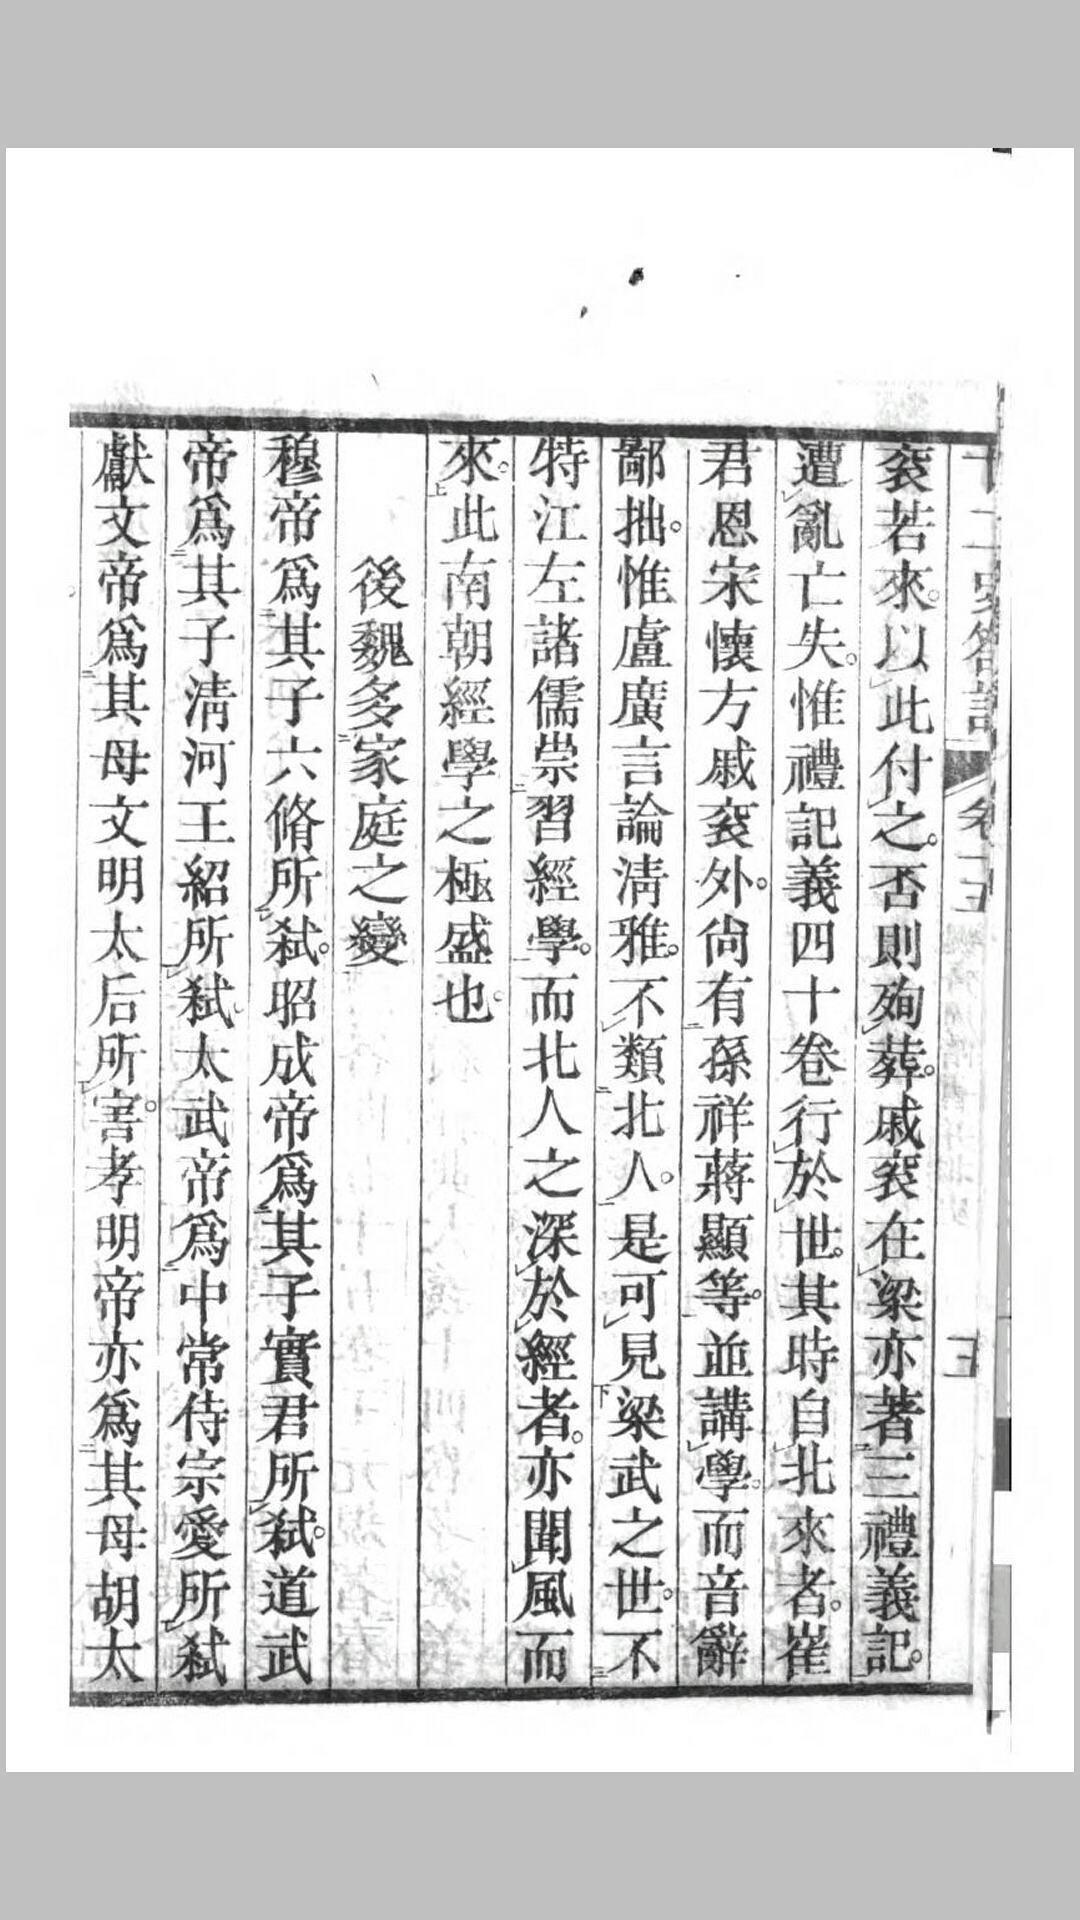 袞若來以此付之否則殉葬戚袞在梁亦著三禮義記
遭亂亡失惟禮記義四十卷行於世其時自北來者崔
君恩宋懷方戚袞外尙有孫祥蔣顯等並講學而音辭
鄙拙惟盧廣言論淸雅不類北人是可見梁武之世不
特江左諸儒崇習經學而北人之深於經者亦聞風而
來此南朝經學之極盛也
後魏多家庭之變
穆帝爲其子六脩所弑昭成帝爲其子實君所弑道武
帝爲其子淸河王紹所弑太武帝爲中常侍宗愛所弑
獻文帝爲其母文明太后所害孝明帝亦爲其母胡太